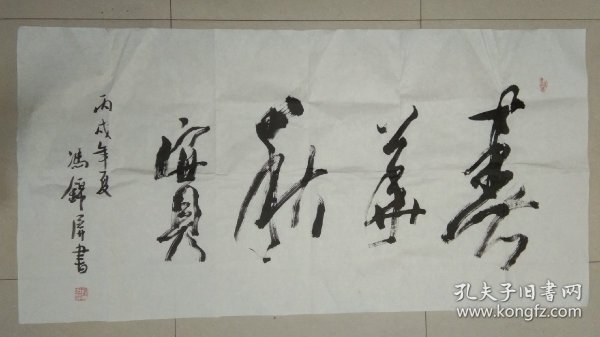 春華秋實
丙戌年夏
馮錦屏書
孔夫子旧书网
www.kongfz.com